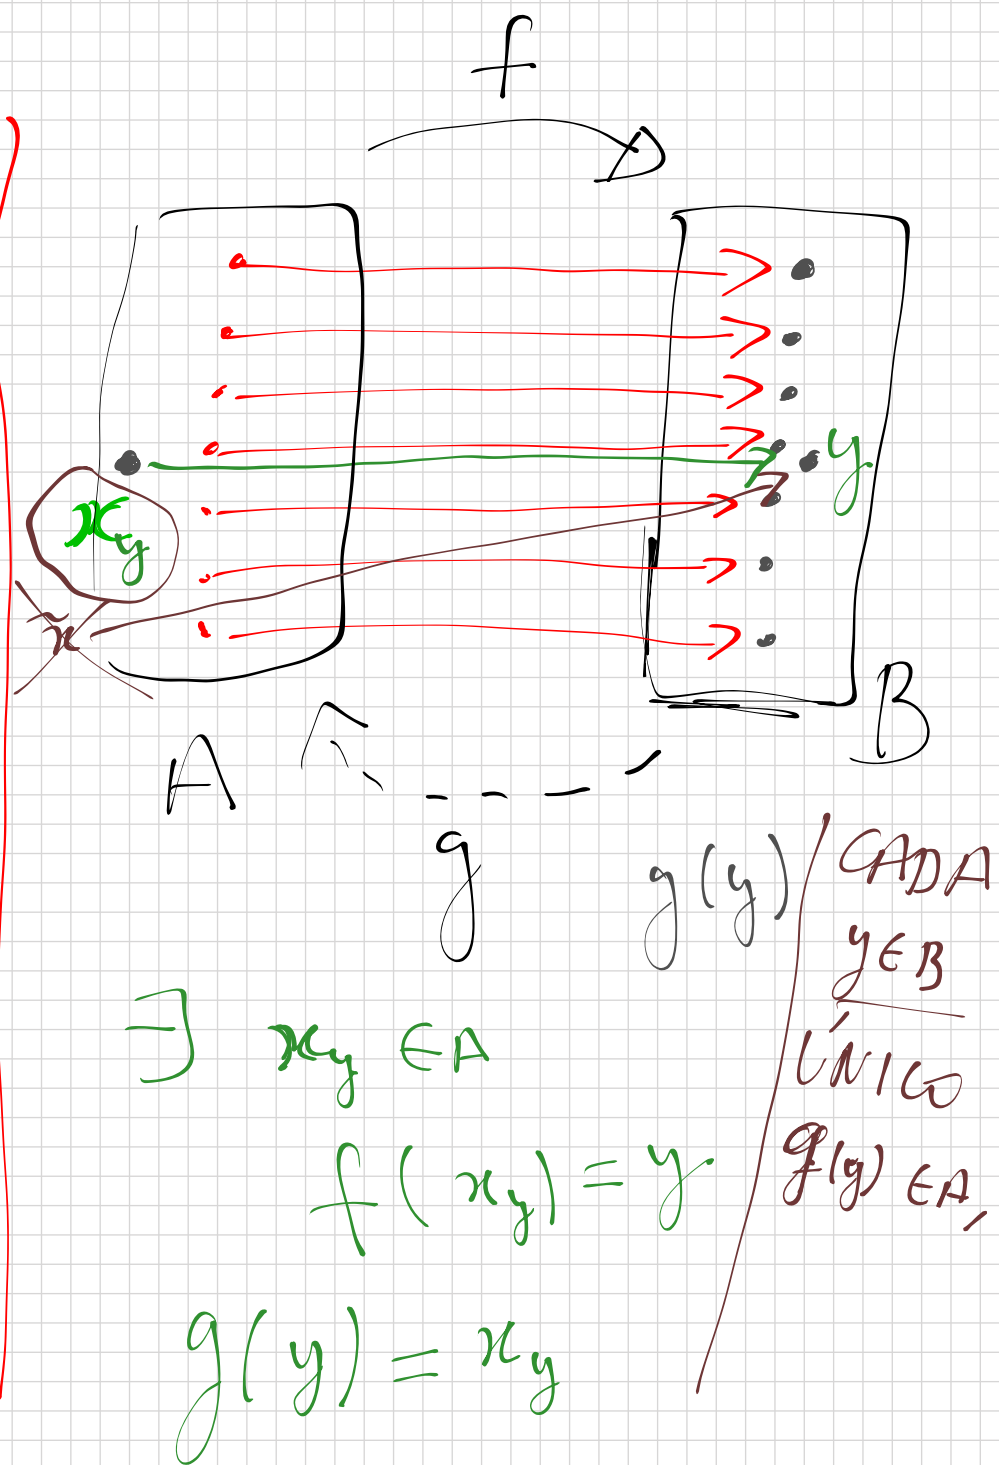 f
y
x_y
x̃
B
A
g
g(y)
CADA
y∈B
ÚNICO
g(y) ∈A,
∃ x_y ∈A
f(x_y)=y
g(y)=x_y